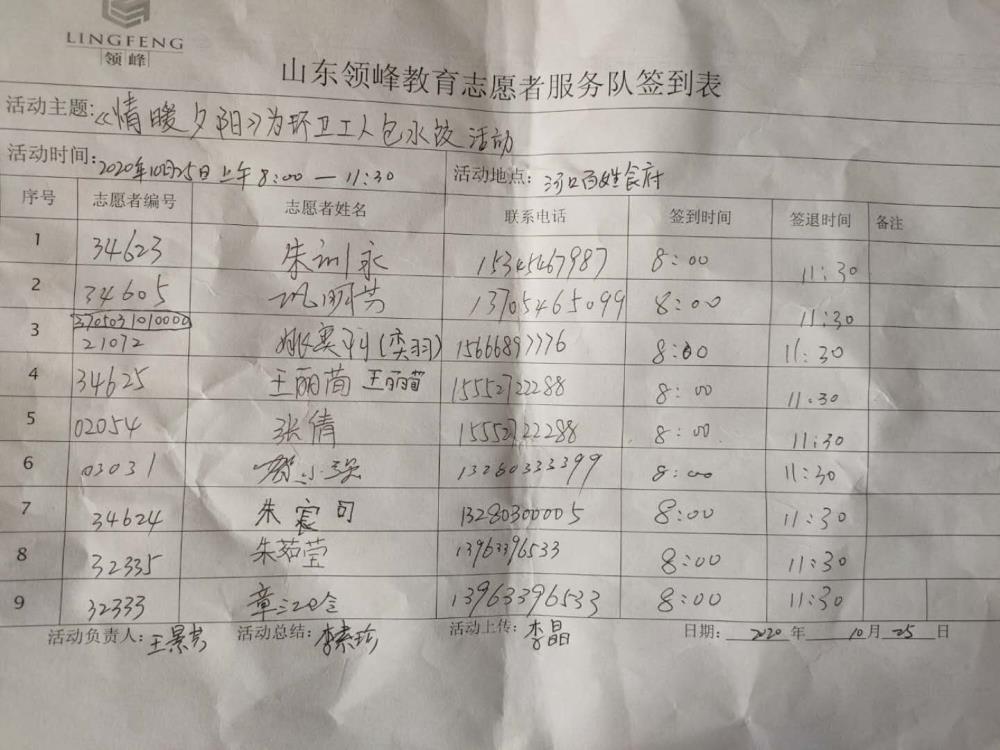 LINGFENG
领峰
山东领峰教育志愿者服务队签到表
活动主题:《情暖夕阳》为环卫工人包水饺活动
活动时间:2020年10月25日上午8:00—11:30 活动地点:河口百姓食府
序号 志愿者编号 志愿者姓名 联系电话 签到时间 签退时间 备注
1 34623 朱训永 15345467987 8:00 11:30
2 34605 巩明芳 13705465099 8:00 11:30
3 3705031010000 21072 姚奕羽(奕羽) 15666897776 8:00 11:30
4 34625 王丽萄 王丽萄 15552722288 8:00 11:30
5 02054 张倩 15552722288 8:00 11:30
6 03031 贺小强 13260333399 8:00 11:30
7 34624 朱宸可 13280300005 8:00 11:30
8 32335 朱茹莹 13963396533 8:00 11:30
9 32333 章 13963396533 8:00 11:30
活动负责人:王景芳 活动总结:李素珍 活动上传:李晶 日期:2020年10月25日